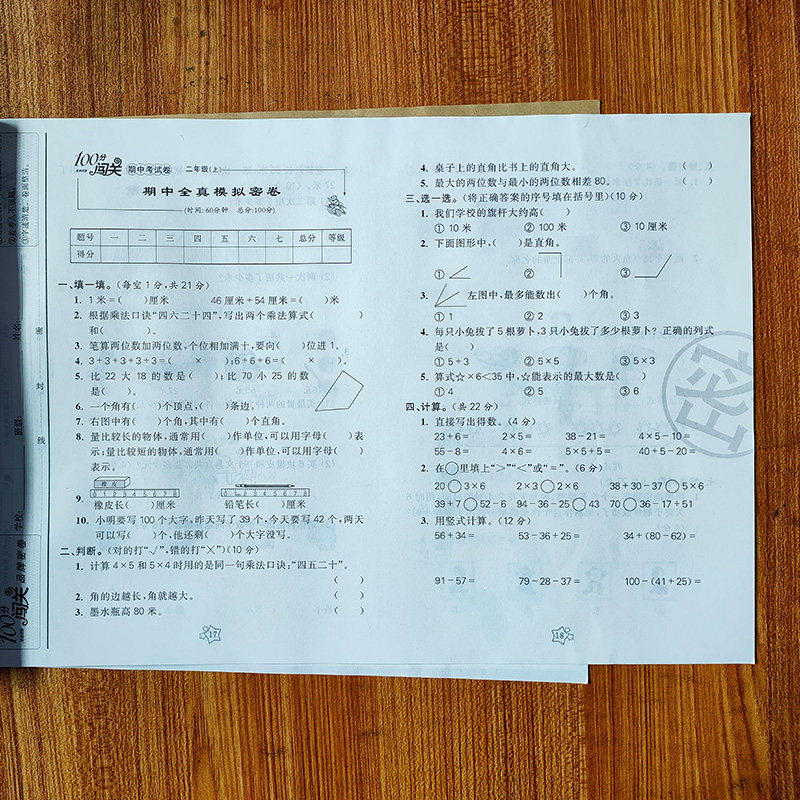 100分闯关
期中考试卷 二年级(上)
期中全真模拟密卷
(时间:60分钟 总分:100分)
题号 一 二 三 四 五 六 七 总分 等级
得分
一、填一填。(每空1分,共21分)
1. 1米=( )厘米 46厘米+54厘米=( )米
2. 根据乘法口诀“四六二十四”,写出两个乘法算式( )
和( )。
3. 笔算两位数加两位数,个位相加满十,要向( )位进1。
4. 3+3+3+3+3=( × );6+6+6=( × )。
5. 比22大18的数是( );比70小25的数
是( )。
6. 一个角有( )个顶点,( )条边。
7. 右图中有( )个角,其中有( )个直角。
8. 量比较长的物体,通常用( )作单位,可以用字母( )表
示;量比较短的物体,通常用( )作单位,可以用字母( )
表示。
9.
橡皮
0 1 2 3 4 5 6 7 8
0 1 2 3 4 5 6 7 8
橡皮长( )厘米 铅笔长( )厘米
10. 小明要写100个大字,昨天写了39个,今天要写42个,两天
可以写( )个,他还剩( )个大字没写。
二、判断。(对的打“√”,错的打“×”)(10分)
1. 计算4×5和5×4时用的是同一句乘法口诀:“四五二十”。
( )
2. 角的边越长,角就越大。 ( )
3. 墨水瓶高80米。 ( )
17
4. 桌子上的直角比书上的直角大。 ( )
5. 最大的两位数与最小的两位数相差80。 ( )
三、选一选。(将正确答案的序号填在括号里)(10分)
1. 我们学校的旗杆大约高( )
①10米 ②100米 ③10厘米
2. 下面图形中,( )是直角。
① ② ③
3. 左图中,最多能数出( )个角。
①1 ②2 ③3
4. 每只小兔拔了5根萝卜,3只小兔拔了多少根萝卜?正确的列式
是( )
①5+3 ②5×5 ③5×3
5. 算式☆×6<35中,☆能表示的最大数是( )
①4 ②5 ③6
四、计算。(共22分)
1. 直接写出得数。(4分)
23+6= 2×5= 38-21= 4×5-10=
55-8= 4×6= 5×5+5= 40+5-20=
2. 在○里填上“>”“<”或“=”。(6分)
20○3×6 2×3○2×6 38+30-37○5×6
39+7○52-6 94-36-25○43 70○36-17+51
3. 用竖式计算。(12分)
56+34= 53-36+25= 34+(80-62)=
91-57= 79-28-37= 100-(41+25)=
18
密
密
封
线
姓名:
班级:
学校:
品牌密卷
100分闯关